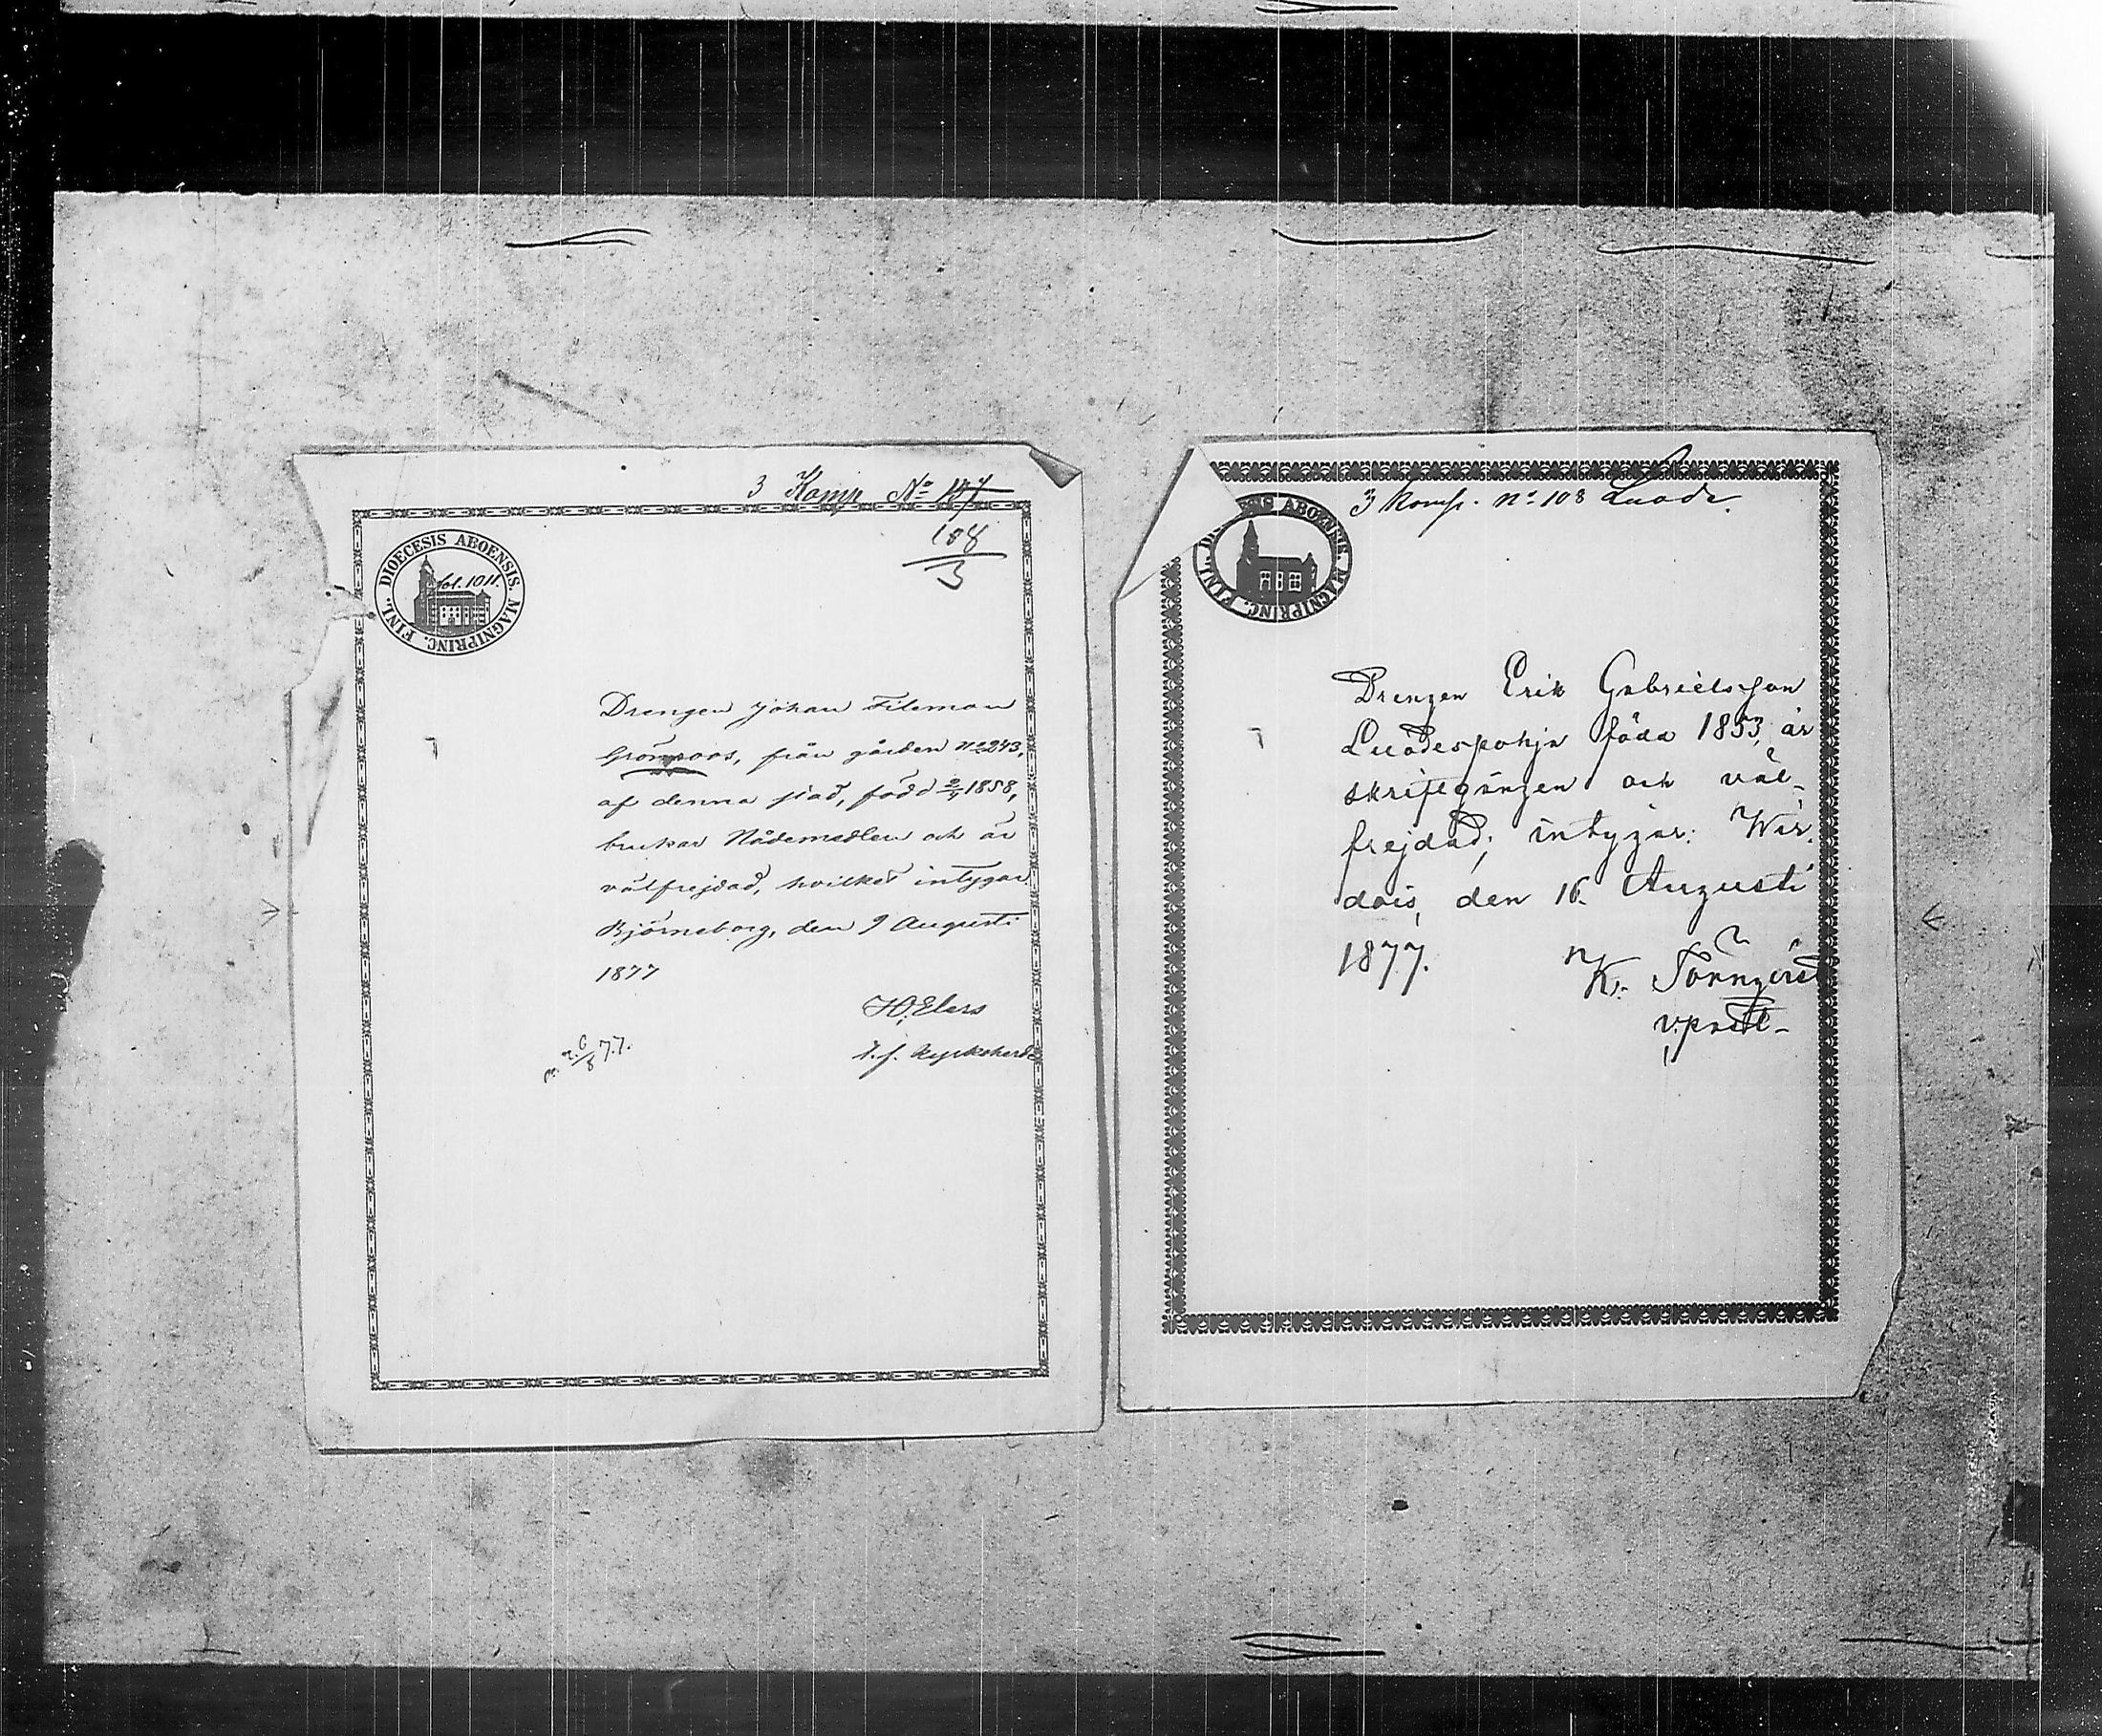 3 Komp No 107
108
3
DIOECESIS ABOENSIS. MAGNIPRINC. FINL.
fol. 1011.
Drengen Johan Fileman
Grönroos, från gården No 243,
af denna stad, född 2/4 1858,
brukar Nådemedlen och är
välfrejdad, hvilket intygar
Björneborg, den 9 Augusti
1877
H. Elers
t.f. Kyrkoherde
m. 26/8 77.
3 Komp. No 108 Luode.
ABOENSIS. MAGNIPRINC. FINL.
Drengen Erik Gabrielsson
Luodespohja född 1853, är
skriftgången och väl-
frejdad; intygar: Wir-
dois, den 16. Augusti
1877.
K. Törnqvist
v.past-